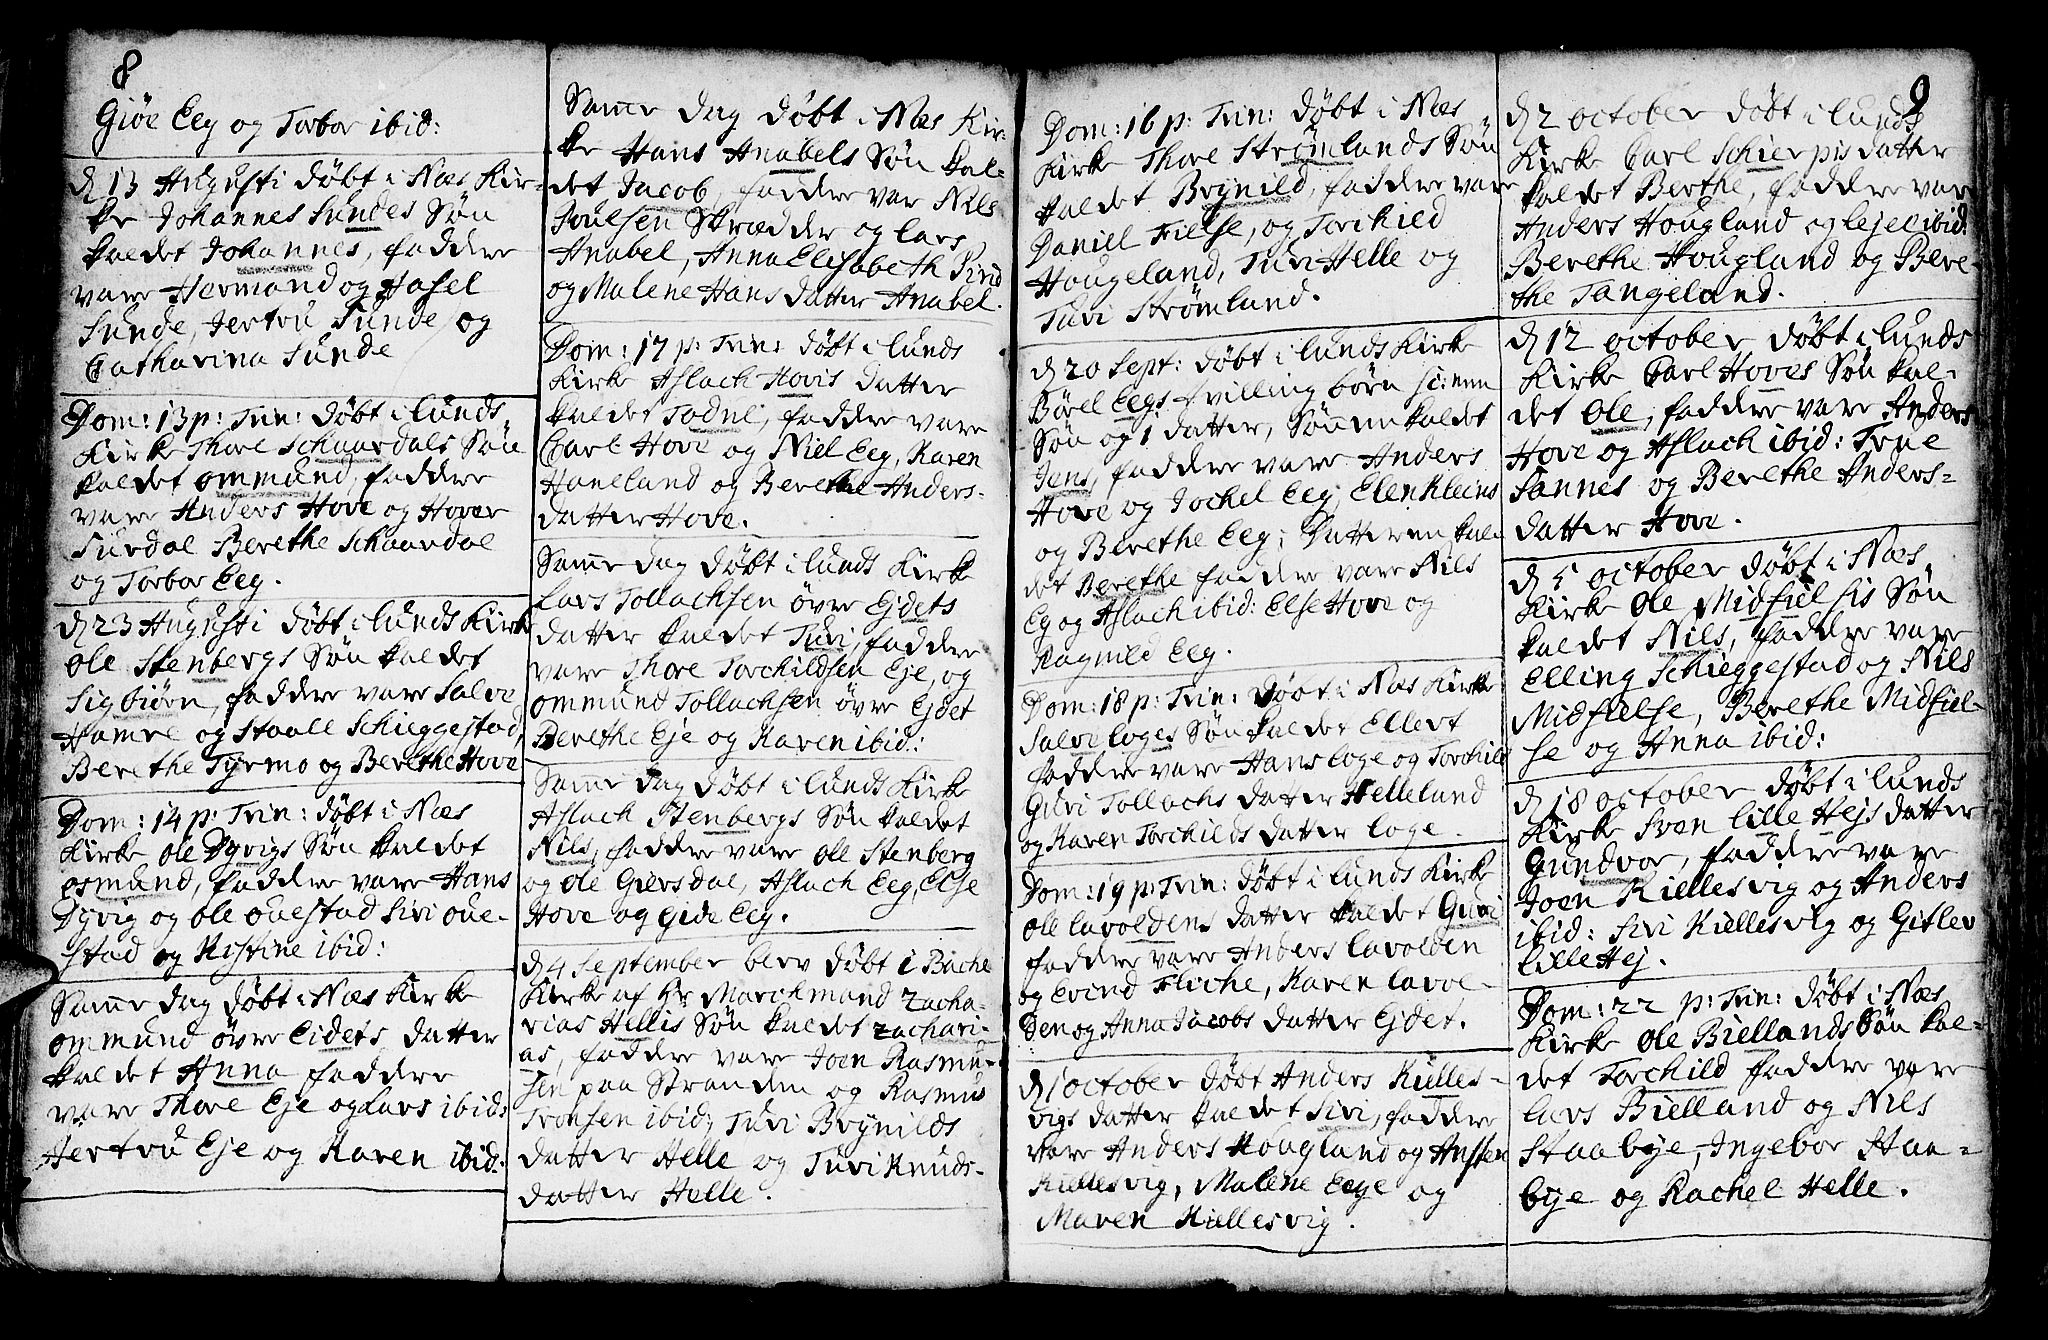 8
Giöe Eeg og Torbor ibid:
d 13 Augusti döbt i Næs Kir-
ke Johannes Sundes Sön
kaldet Johannes, faddere
vare Hermand og Hasel
Sunde, Jertru Sunde og
Catharina Sunde
Dom: 13 p: Trin: döbt i Lunds
Kirke Thore Schaardals Sön
kaldet Ommund, faddere
vare Anders Hove og Hover
Surdal Berethe Schaardal
og Torbor Eeg.
d 23 Augusti döbt i Lunds Kirke
Ole Stenbergs Sön kaldet
Sigbiörn, faddere vare Salve
Hamre og Staall Schieggestad,
Berethe Tyrmo og Berethe Hove
Dom: 14 p: Trin: döbt i Næs
Kirke Ole Dyvigs Sön kaldet
Osmund, faddere vare Hans
Dyvig og Ole Ouestad Siri Oue-
stad og Kistine ibid:
Samme dag döbt i Næs Kirke
Ommund övre Eidets datter
kaldet Anna faddere
vare Thore Eje og Lars ibid:
Jertru Eje og Karen ibid:
Samme dag döbt i Næs Kir-
ke Hans Anabels Sön kal-
det Jacob, faddere var Nils
Poulsen Skrædder og Lars
Anabel, Anna Elisabeth Sirid
og Malene Hans datter Anabel.
Dom: 17 p: Trin: döbt i Lunds
Kirke Aslach Hovis datter
kaldet Todne, faddere vare
Carl Hove og Niel Eeg, Karen
Haneland og Berethe Anders-
datter Hove.
Samme dag döbt i Lunds Kirke
Lars Tollachsen övre Ejdets
datter kaldet Turi, faddere
vare Thore Torchildsen Eje, og
Ommund Tollachsen övre Ejdet
Berethe Eje og Karen ibid:
Samme dag döbt i Lunds Kirke
Aslach Stenbergs Sön kaldet
Nils, faddere vare Ole Stenberg
og Ole Giersdal, Aslach Eeg, Else
Hove og Gide Eeg.
d 4 September blev döbt i Bache
Kirke af Hr Marchmand Zacha-
rias Hellis Sön kaldet Zachari-
as, faddere vare Joen Rasmu-
sen paa Stranden og Rasmus
Tronsen ibid; Turi Brynilds
datter Helle og Turi Knuds-
datter Helle.
Dom: 16 p: Trin: döbt i Næs
Kirke Thore Strömlands Sön
kaldet Brynild, faddere vare
Daniel Fielse, og Torchild
Hougeland, Turi Helle og
Turi Strömland.
d 20 Sept: döbt i Lunds Kirke
Börel Eegs tvilling börn sc: een
Sön og 1 datter, Sönnen kaldet
Jens, faddere vare Anders
Hove og Jochel Eeg, Elen Kleins
og Berethe Eeg; Datteren kal-
det Berethe faddere vare Nils
Eg og Aslach ibid: Else Hove og
Ragnild Eeg.
Dom: 18 p: Trin: döbt i Næs Kirke
Salve Loges Sön kaldet Ellert
faddere vare Hans Loge og Torchild
Guri Tollachs datter Helleland
og Karen Torchilds datter Loge.
Dom: 19 p: Trin: döbt i Lunds Kirke
Ole Lavoldens datter kaldet Guri
faddere vare Anders Lavolden
og Evind Fliche, Karen Lavol-
den og Anna Jacobs datter Ejdet.
d 1 October döbt Anders Kielles-
vigs datter kaldet Siri, faddere
vare Anders Hougland og Ansten
Kiellesvig, Malene Eege og
Maren Kiellesvig.
9
d 2 October döbt i Lunds
Kirke Carl Schierpis datter
kaldet Berthe, faddere var
Anders Hougland og Lejel ibid:
Berethe Hougland og Bere-
the Tangeland.
d 12 October döbt i Lunds
Kirke Carl Hoves Sön kal-
det Ole, faddere vare Anders
Hove og Aslach ibid: Trne
Sannes og Berethe Anders-
datter Hove.
d 5 October döbt i Næs
Kirke Ole Midfielsis Sön
kaldet Nils, faddere vare
Elling Schieggestad og Nils
Midfielse, Berethe Midfiel-
se og Anna ibid:
d 18 October döbt i Lunds
Kirke Sven Lille Hejs datter
Gundvor, faddere vare
Joen Kiellesvig og Anders
ibid: Siri Kiellesvig og Gitlev
Lille Hej.
Dom: 22 p: Trin: döbt i Næs
Kirke Ole Biellands Sön kal-
det Torchild faddere vare
Lars Bielland og Nils
Staabye, Ingebor Staa-
bye og Rachel Helle.